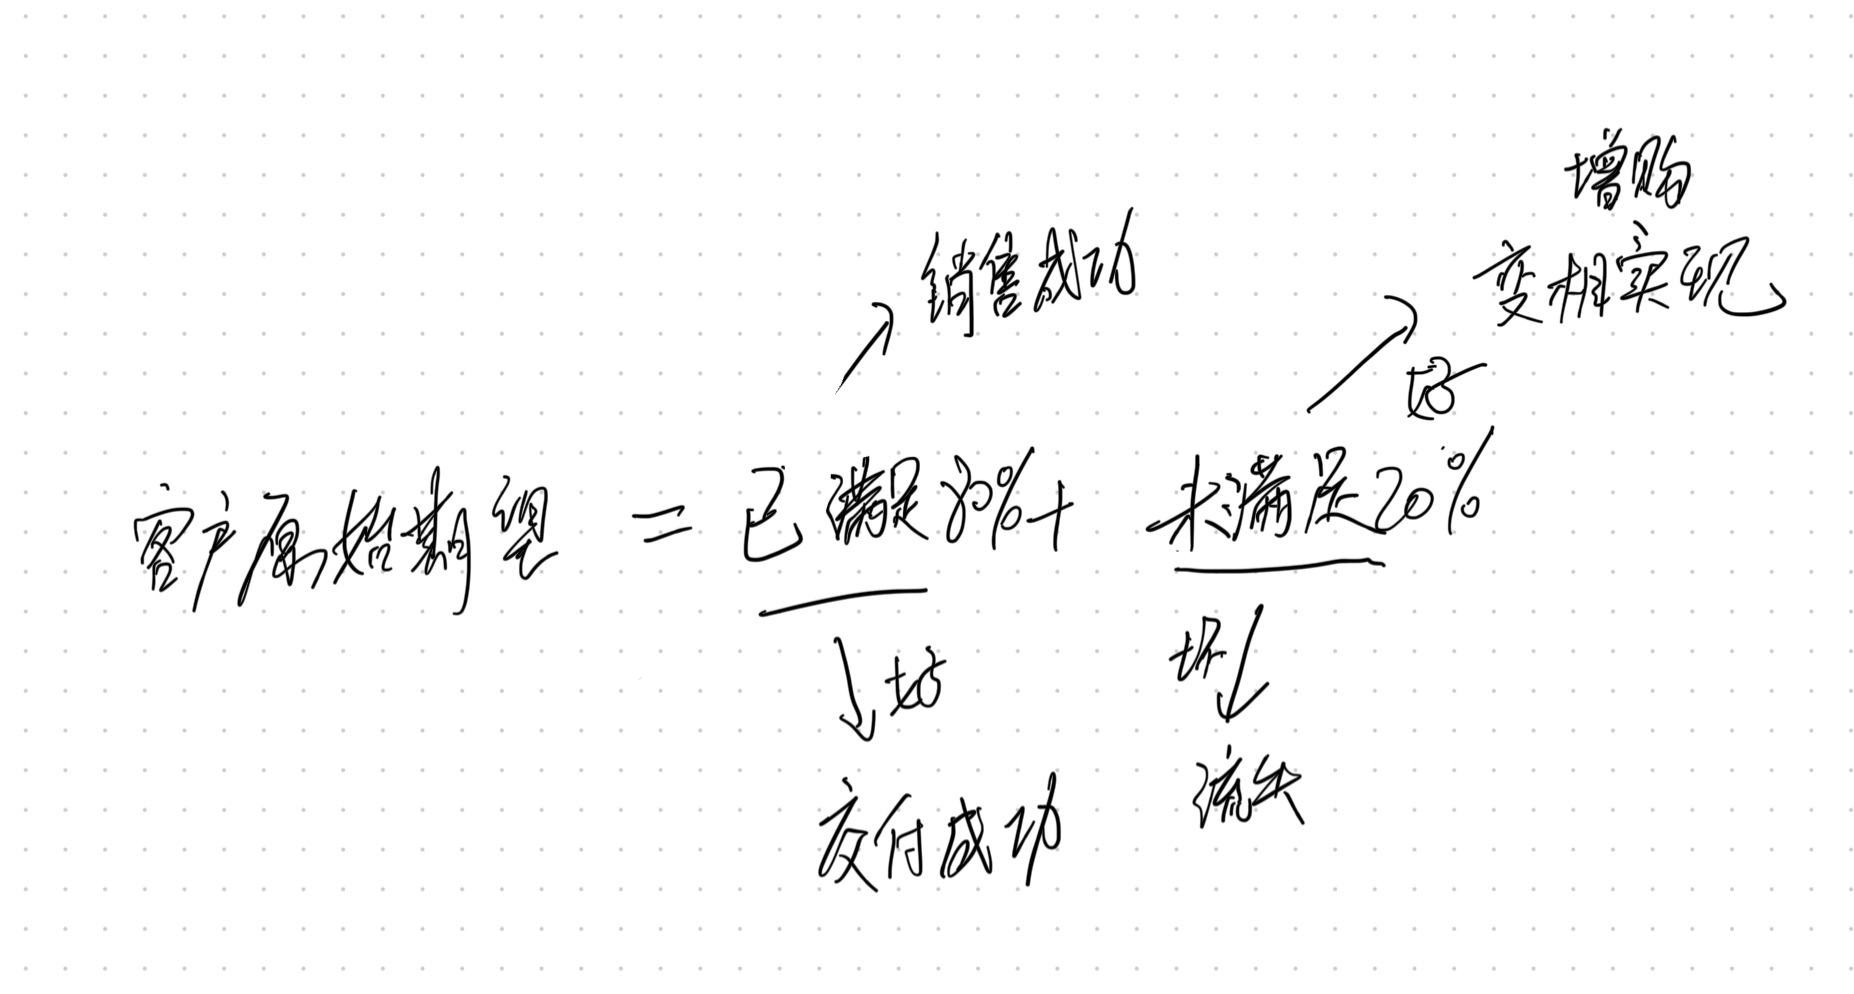 增购
变相实现
销售成功
好
客户原始期望 = 已满足80% + 未满足20%
好
坏
交付成功
流失